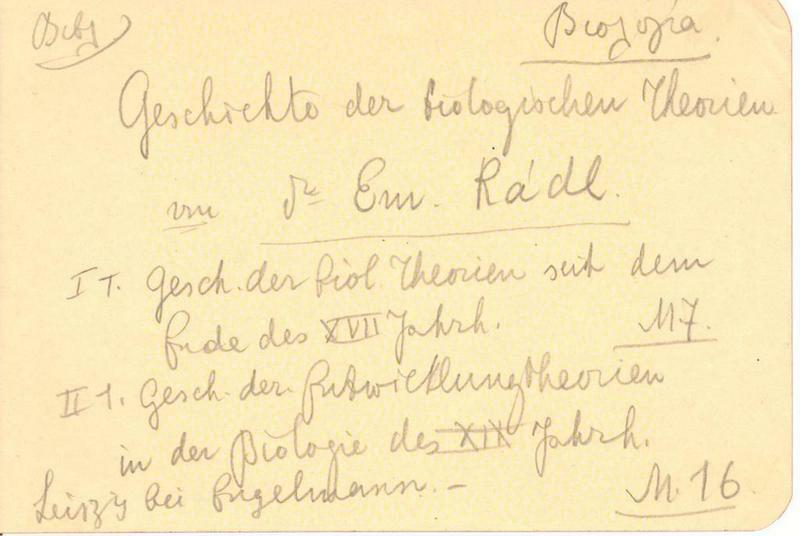 Biología.
Geschichte der biologischen Theorien
von Dr Em. Rádl.
I T. Gesch. der biol. Theorien seit dem
Ende des XVII Jahrh. M 7.
II T. Gesch. der Entwicklungstheorien
in der Biologie des XIX Jahrh.
Leipzig bei Engelmann. – M. 16